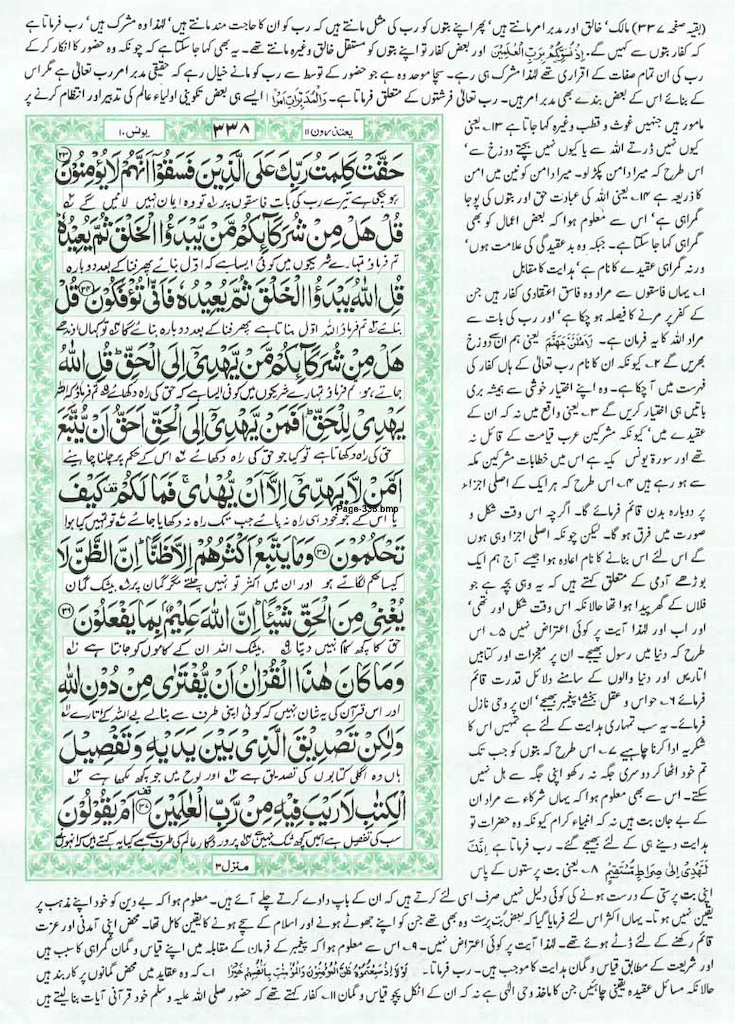 (بقیہ صفحہ ۳۳۷) مالک' خالق اور مدبر امر مانتے ہیں' پھر اپنے بتوں کو رب کی مثل مانتے ہیں کہ رب کو ان کا حاجت مند مانتے ہیں' لہٰذا وہ مشرک ہیں' رب فرماتا ہے
کہ کفار بتوں سے کہیں گے۔ اِذْ نُسَوِّيْكُمْ بِرَبِّ الْعٰلَمِيْنَ اور بعض کفار تو اپنے بتوں کو مستقل خالق وغیرہ مانتے تھے۔ یہ بھی کہا جا سکتا ہے کہ چونکہ وہ حضور کا انکار کر کے
رب کی ان تمام صفات کے اقراری تھے لہٰذا مشرک ہی رہے۔ سچا موحد وہ ہے جو حضور کے توسط سے رب کو مانے خیال رہے کہ حقیقی مدبر امر رب تعالیٰ ہے مگر اس
کے بنائے اس کے بعض بندے بھی مدبر امر ہیں۔ رب تعالیٰ فرشتوں کے متعلق فرماتا ہے۔ وَالْمُدَبِّرَاتِ اَمْرًا ایسے ہی بعض تکوینی اولیاء عالم کی تدبیر اور انتظام کرنے پر
مامور ہیں جنہیں غوث و قطب وغیرہ کہا جاتا ہے ۱۳۔ یعنی
کیوں نہیں ڈرتے اللہ سے یا کیوں نہیں بچتے دوزخ سے'
اس طرح کہ میرا دامن پکڑ لو۔ میرا دامن کونین میں امن
کا ذریعہ ہے ۱۴۔ یعنی اللہ کی عبادت حق اور بتوں کی پوجا
گمراہی ہے' اس سے معلوم ہوا کہ بعض اعمال کو بھی
گمراہی کہا جا سکتا ہے۔ جبکہ وہ بد عقیدگی کی علامت ہوں'
ورنہ گمراہی عقیدے کا نام ہے' ہدایت کا مقابل
۱۔ یہاں فاسقوں سے مراد وہ فاسق اعتقادی کفار ہیں جن
کے کفر پر مرنے کا فیصلہ ہو چکا ہے' اور رب کی بات سے
مراد اللہ کا یہ فرمان ہے۔ لَاَمْلَئَنَّ جَهَنَّمَ یعنی ہم ان سے دوزخ
بھریں گے ۲۔ کیونکہ ان کا نام رب تعالیٰ کے ہاں کفار کی
فہرست میں آ چکا ہے۔ وہ اپنے اختیار خوشی سے ہمیشہ بری
باتیں ہی اختیار کریں گے ۳۔ یعنی واقع میں نہ کہ ان کے
عقیدے میں' کیونکہ مشرکین عرب قیامت کے قائل نہ
تھے اور سورۃ یونس مکیہ ہے اس میں خطابات مشرکین مکہ
سے ہو رہے ہیں ۴۔ اس طرح کہ ہر ایک کے اصلی اجزاء
پر دوبارہ بدن قائم فرمائے گا۔ اگرچہ اس وقت شکل و
صورت میں فرق ہو گا۔ لیکن چونکہ اصلی اجزا وہی ہوں
گے اس لئے اس بنانے کا نام اعادہ ہوا جیسے آج ہم ایک
بوڑھے آدمی کے متعلق کہتے ہیں کہ یہ وہی بچہ ہے جو
فلاں کے گھر پیدا ہوا تھا حالانکہ اس وقت شکل اور تھی'
اور اب اور لہٰذا آیت پر کوئی اعتراض نہیں ۵۔ اس
طرح کہ دنیا میں رسول بھیجے۔ ان پر معجزات اور کتابیں
اتاریں اور دنیا والوں کے سامنے دلائل قدرت قائم
فرمائے ۶۔ حواس و عقل بخشے' پیغمبر بھیجے' ان پر وحی نازل
فرمائی۔ یہ سب تمہاری ہدایت کے لئے ہے تمہیں اس کا
شکریہ ادا کرنا چاہیے ۷۔ اس طرح کہ بتوں کو جب تک
تم خود اٹھا کر دوسری جگہ نہ رکھو اپنی جگہ سے ہل نہیں
سکتے۔ اس سے بھی معلوم ہوا کہ یہاں شرکاء سے مراد ان
کے بے جان بت ہیں نہ کہ انبیاء کرام کیونکہ وہ حضرات تو
ہدایت دینے ہی کے لئے بھیجے گئے۔ رب فرماتا ہے اِنَّكَ
لَتَهْدِیْ اِلٰی صِرَاطٍ مُّسْتَقِيْمٍ ۸۔ یعنی بت پرستوں کے پاس
یعتذرون ۱۱ ۳۳۸ یونس ۱۰
حَقَّتْ كَلِمَتُ رَبِّكَ عَلَى الَّذِيْنَ فَسَقُوْۤا اَنَّهُمْ لَا يُؤْمِنُوْنَ ۳۳
ہو چکی ہے تیرے رب کی بات فاسقوں پر تو وہ ایمان نہیں لائیں گے
قُلْ هَلْ مِنْ شُرَكَآىِٕكُمْ مَّنْ يَّبْدَؤُا الْخَلْقَ ثُمَّ يُعِيْدُهٗ
تم فرماؤ تمہارے شریکوں میں کوئی ایسا ہے کہ اوّل بنائے پھر فنا کے بعد دوبارہ
قُلِ اللّٰهُ يَبْدَؤُا الْخَلْقَ ثُمَّ يُعِيْدُهٗ فَاَنّٰى تُؤْفَكُوْنَ ۳۴ قُلْ
بنائے تم فرماؤ اللہ اوّل بناتا ہے پھر فنا کے بعد دوبارہ بنائے گا تو کہاں اوندھے
هَلْ مِنْ شُرَكَآىِٕكُمْ مَّنْ يَّهْدِیْۤ اِلَى الْحَقِّ ؕ قُلِ اللّٰهُ
جاتے ہو، تم فرماؤ تمہارے شریکوں میں کوئی ایسا ہے کہ حق کی راہ دکھائے تم فرماؤ کہ اللہ
يَهْدِیْ لِلْحَقِّ ؕ اَفَمَنْ يَّهْدِیْۤ اِلَى الْحَقِّ اَحَقُّ اَنْ يُّتَّبَعَ
حق کی راہ دکھاتا ہے تو کیا جو حق کی راہ دکھائے اس کے حکم پر چلنا چاہیئے
اَمَّنْ لَّا يَهِدِّیْۤ اِلَّاۤ اَنْ يُّهْدٰى ۚ فَمَا لَكُمْ قف كَيْفَ
یا اس کے جو خود ہی راہ نہ پائے جب تک راہ نہ دکھایا جائے تو تمہیں کیا ہوا
Page-338.bmp
تَحْكُمُوْنَ ۳۵ وَمَا يَتَّبِعُ اَكْثَرُهُمْ اِلَّا ظَنًّا ؕ اِنَّ الظَّنَّ لَا
کیسا حکم لگاتے ہو اور ان میں اکثر تو نہیں چلتے مگر گمان پر بیشک گمان
يُغْنِیْ مِنَ الْحَقِّ شَيْـًٔا ؕ اِنَّ اللّٰهَ عَلِيْمٌۢ بِمَا يَفْعَلُوْنَ ۳۶
حق کا کچھ کام نہیں دیتا بیشک اللہ ان کے کاموں کو جانتا ہے
وَمَا كَانَ هٰذَا الْقُرْاٰنُ اَنْ يُّفْتَرٰى مِنْ دُوْنِ اللّٰهِ
اور اس قرآن کی یہ شان نہیں کہ کوئی اپنی طرف سے بنالے بے اللہ کے اتارے
وَلٰكِنْ تَصْدِيْقَ الَّذِیْ بَيْنَ يَدَيْهِ وَتَفْصِيْلَ
ہاں وہ اگلی کتابوں کی تصدیق ہے اور لوح میں جو کچھ لکھا ہے
الْكِتٰبِ لَا رَيْبَ فِيْهِ مِنْ رَّبِّ الْعٰلَمِيْنَ ۳۷ قف اَمْ يَقُوْلُوْنَ
سب کی تفصیل ہے اس میں کچھ شک نہیں پروردگار عالم کی طرف سے ہے کیا یہ کہتے ہیں کہ انہوں
منزل ۳
اپنی بت پرستی کے درست ہونے کی کوئی دلیل نہیں صرف اسی لئے کرتے ہیں کہ ان کے باپ دادے کرتے چلے آئے ہیں۔ معلوم ہوا کہ بے دین کو خود اپنے مذہب پر
یقین نہیں ہوتا۔ یہاں اکثر اس لئے فرمایا گیا کہ بعض بت پرست وہ بھی تھے جن کو اپنے جھوٹے ہونے اور اسلام کے سچے ہونے کا یقین کامل تھا۔ محض اپنی آمدنی اور عزت
قائم رکھنے کے لئے ڈٹے ہوئے تھے۔ لہٰذا آیت پر کوئی اعتراض نہیں۔ ۹۔ اس سے معلوم ہوا کہ پیغمبر کے فرمان کے مقابلہ میں اپنے قیاس و گمان گمراہی کا سبب ہیں
اور شریعت کے مطابق قیاس و گمان ہدایت کا موجب ہیں۔ رب فرماتا۔ لَوْلَاۤ اِذْ سَمِعْتُمُوْهُ ظَنَّ الْمُؤْمِنُوْنَ وَالْمُؤْمِنٰتُ بِاَنْفُسِهِمْ خَيْرًا ۱۰۔ کہ وہ عقاید میں محض گمانوں پر کاربند ہیں
حالانکہ مسائل عقیدہ یقینی چاہئیں جن کا ماخذ وحی الٰہی ہے نہ کہ ان کے اٹکل پچو قیاس و گمان ۱۱۔ کفار کہتے تھے کہ حضور صلی اللہ علیہ وسلم خود قرآنی آیات بنا لیتے ہیں